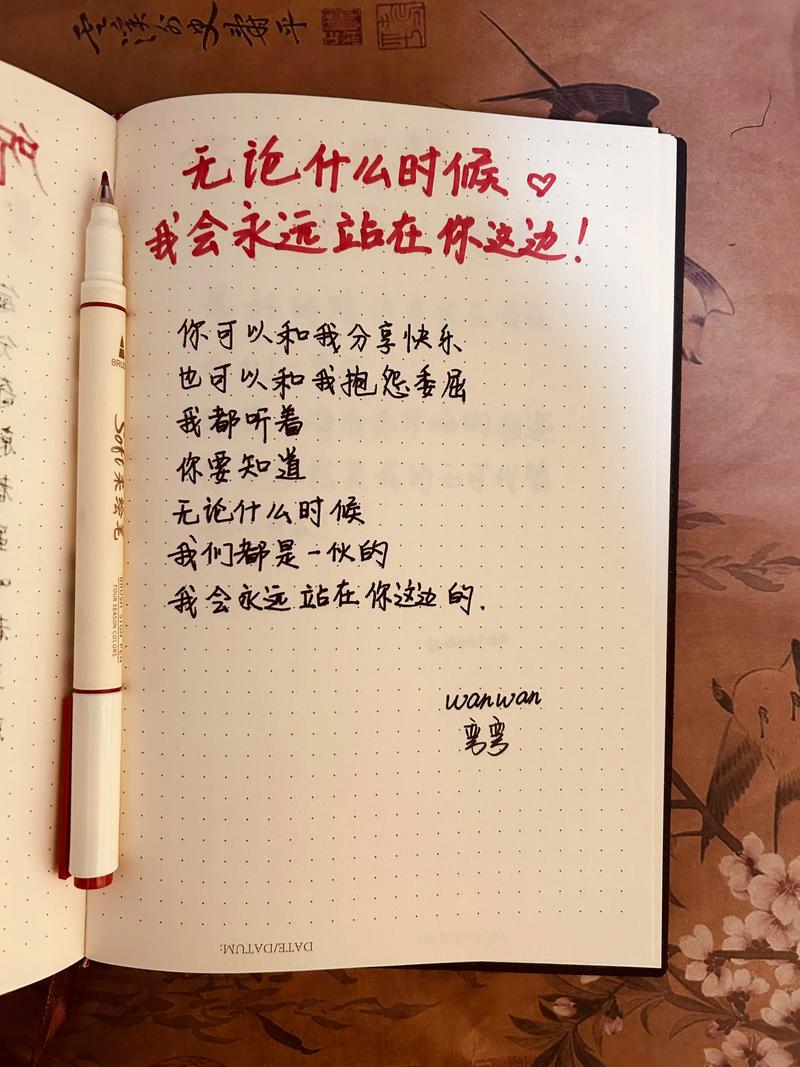 无论什么时候♡
我会永远站在你这边!
你可以和我分享快乐
也可以和我抱怨委屈
我都听着
你要知道
无论什么时候
我们都是一伙的
我会永远站在你这边的.
wanwan
弯弯
DATE/DATUM:
BRUSH SIGN PEN
FOUR SEASON COLORS